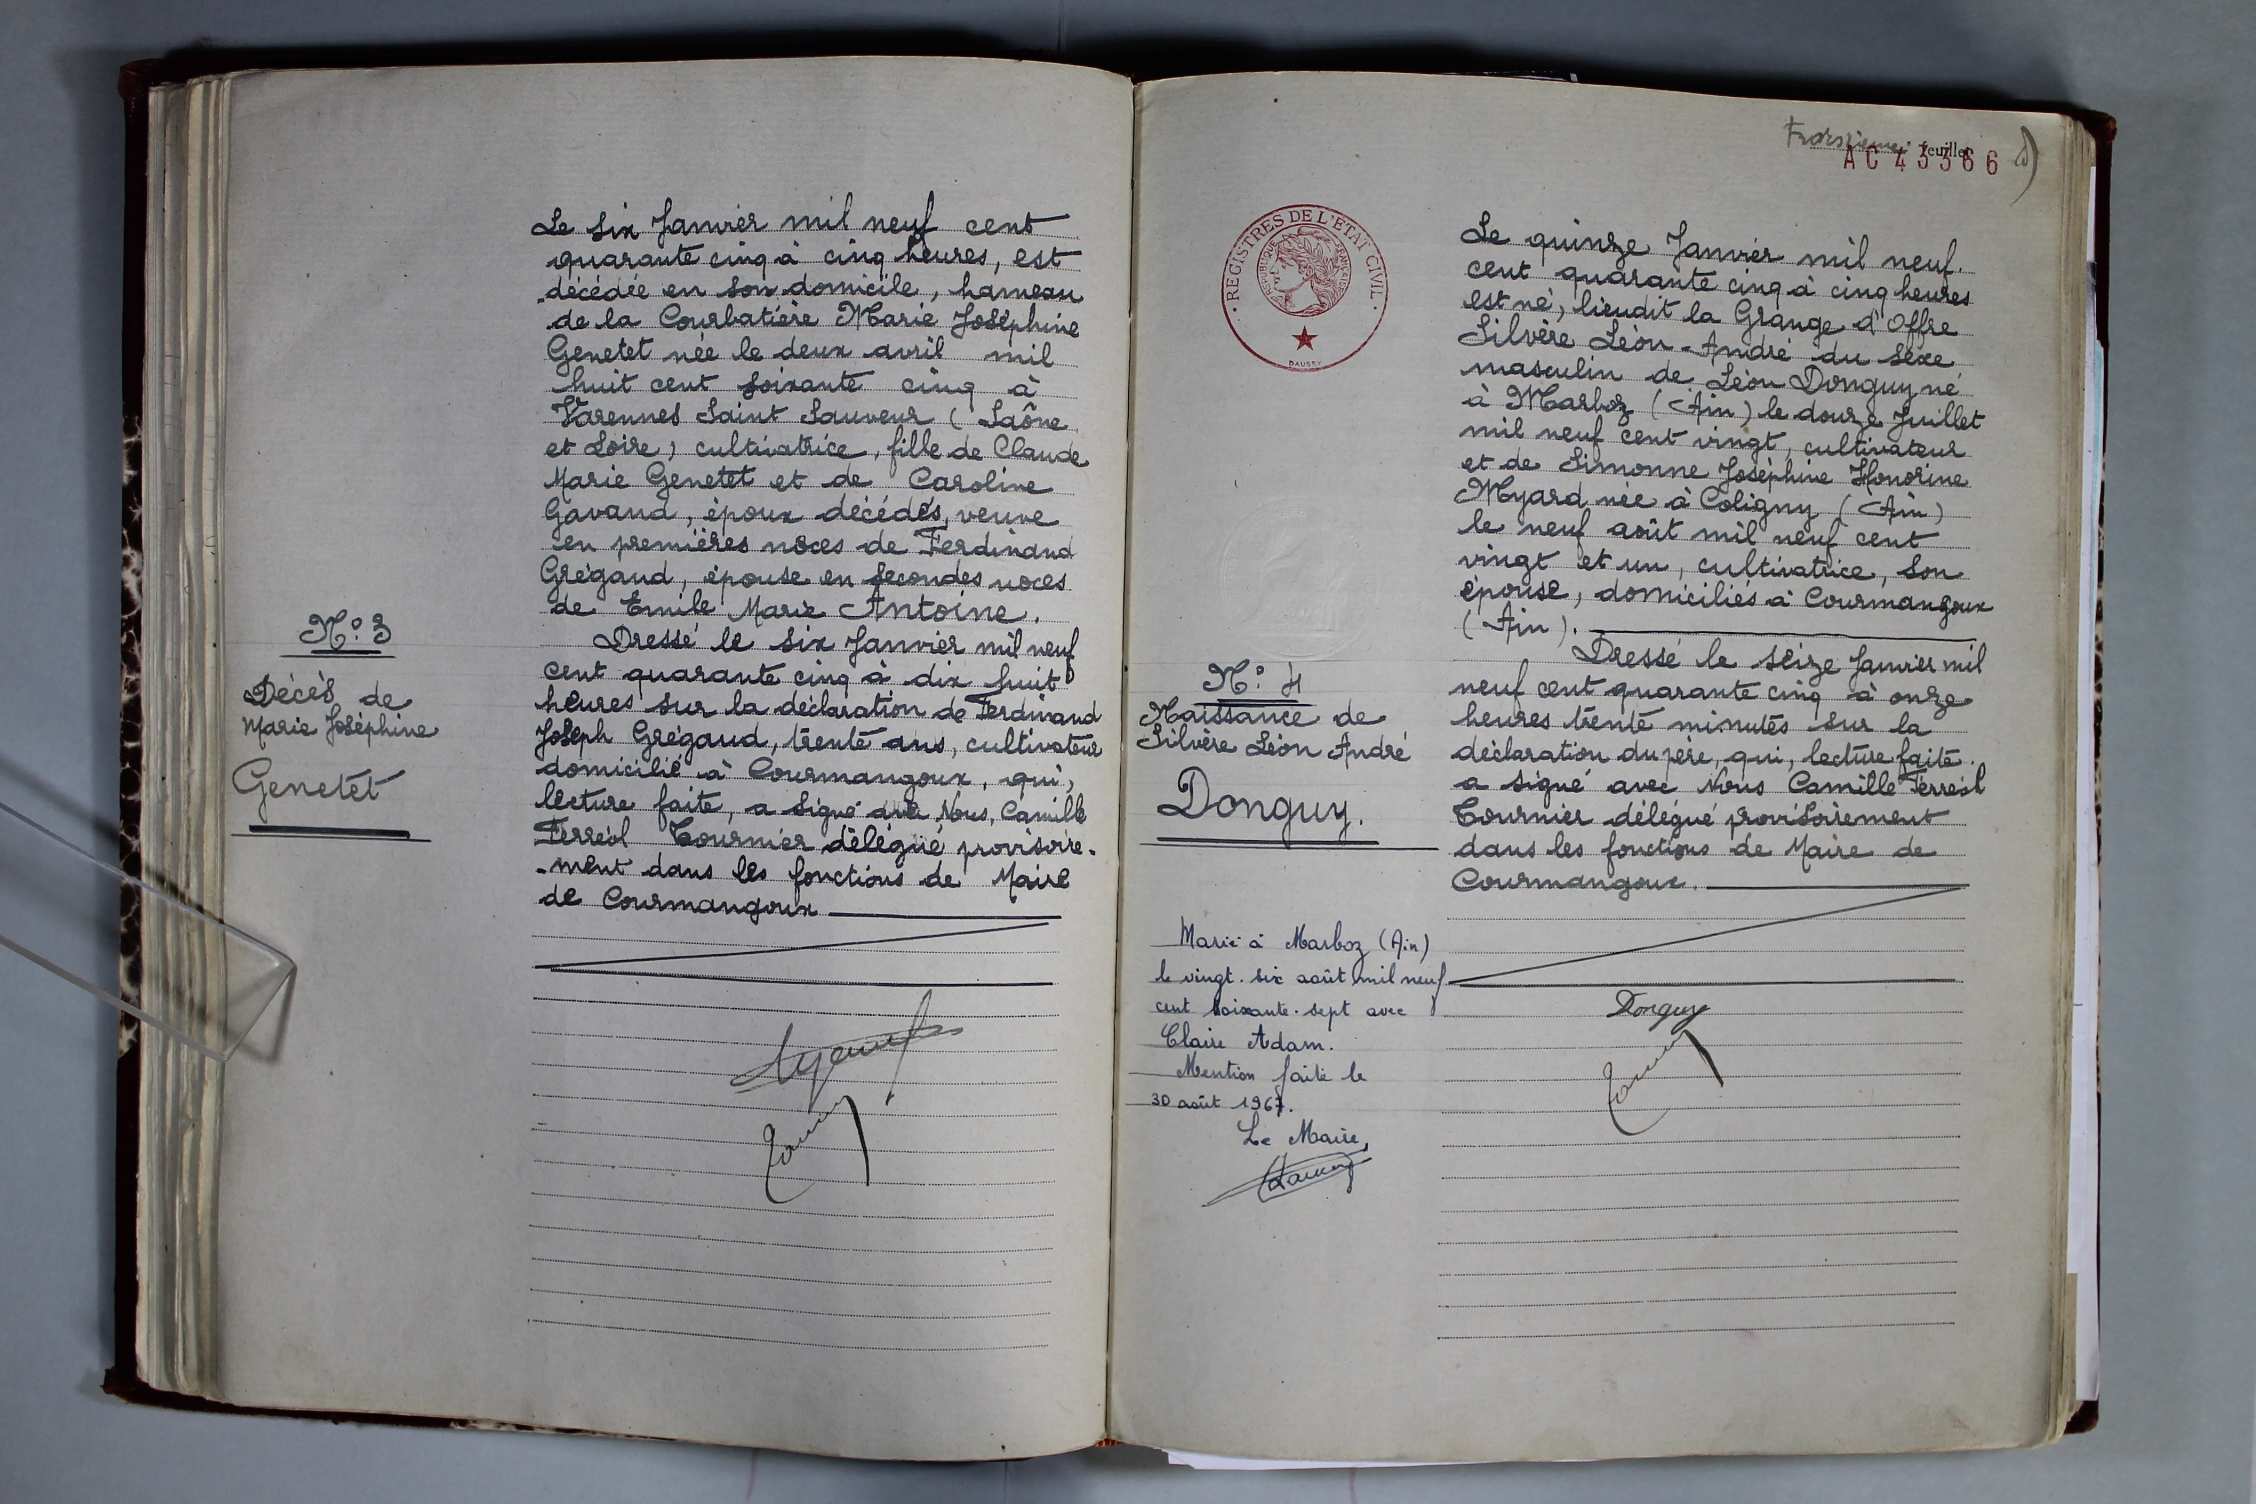 N° 3
Décès de
Marie Joséphine
Genetet
Le six Janvier mil neuf cent
quarante cinq à cinq heures, est
décédée en son domicile, hameau
de la Courbatière Marie Joséphine
Genetet née le deux avril mil
huit cent soixante cinq à
Varennes Saint Sauveur (Saône
et Loire) cultivatrice, fille de Claude
Marie Genetet et de Caroline
Gavand, époux décédés, veuve
en premières noces de Ferdinand
Grégaud, épouse en secondes noces
de Emile Marie Antoine.
Dressé le six Janvier mil neuf
cent quarante cinq à dix huit
heures sur la déclaration de Ferdinand
Joseph Grégaud, trente ans, cultivateur
domicilié à Courmangoux, qui,
lecture faite, a signé avec Nous, Camille
Ferréol Tournier délégué provisoire-
-ment dans les fonctions de Maire
de Courmangoux
Troisième feuillet
AC 43366
REGISTRES DE L'ETAT CIVIL
REPUBLIQUE FRANÇAISE
DAUSSY
N° 4
Naissance de
Silvère Léon André
Donguy.
Marié à Marboz (Ain)
le vingt-six août mil neuf
cent soixante-sept avec
Claire Adam.
Mention faite le
30 août 1967.
Le Maire,
Le quinze Janvier mil neuf
cent quarante cinq à cinq heures
est né, lieudit la Grange d'Offre
Silvère Léon-André du sexe
masculin de Léon Donguy né
à Marboz (Ain) le douze Juillet
mil neuf cent vingt, cultivateur
et de Simonne Joséphine Honorine
Myard née à Coligny (Ain)
le neuf août mil neuf cent
vingt et un, cultivatrice, son
épouse, domiciliés à Courmangoux
(Ain).
Dressé le seize Janvier mil
neuf cent quarante cinq à onze
heures trente minutes sur la
déclaration du père, qui, lecture faite.
a signé avec Nous Camille Ferréol
Tournier délégué provisoirement
dans les fonctions de Maire de
Courmangoux.
Donguy